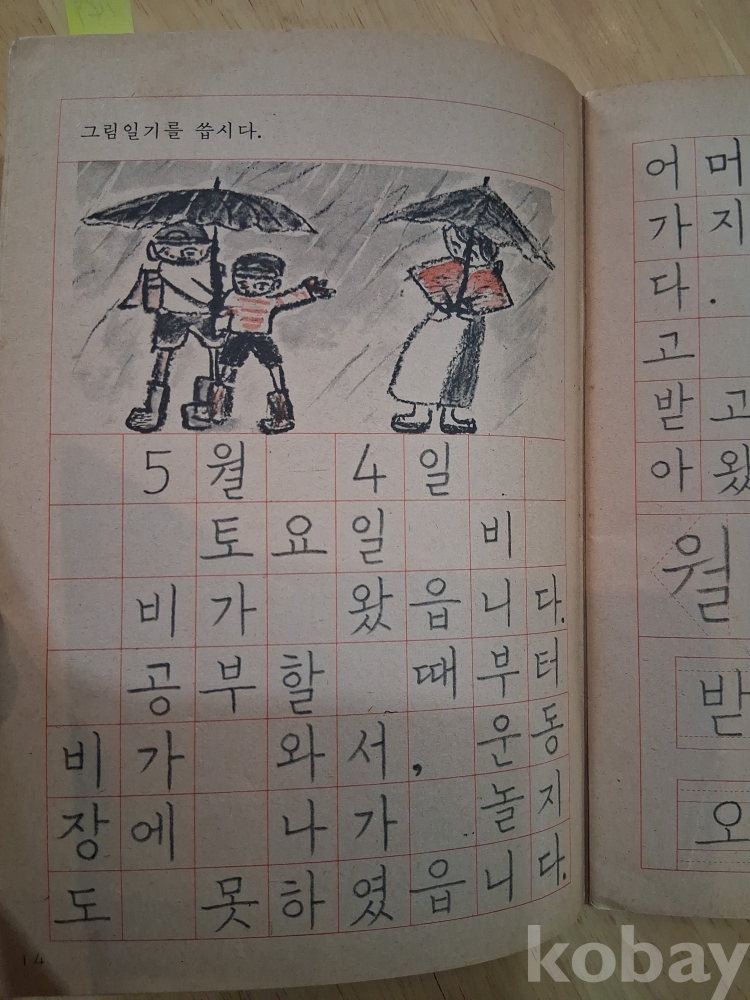 그림일기를 씁시다.
5월 4일
토요일 비
비가 왔읍니다.
공부할 때부터
비가 와서, 운동
장에 나가 놀지
도 못하였읍니다.
14
어머
가지
다.
고
받고
아왔
월
받
오
kobay